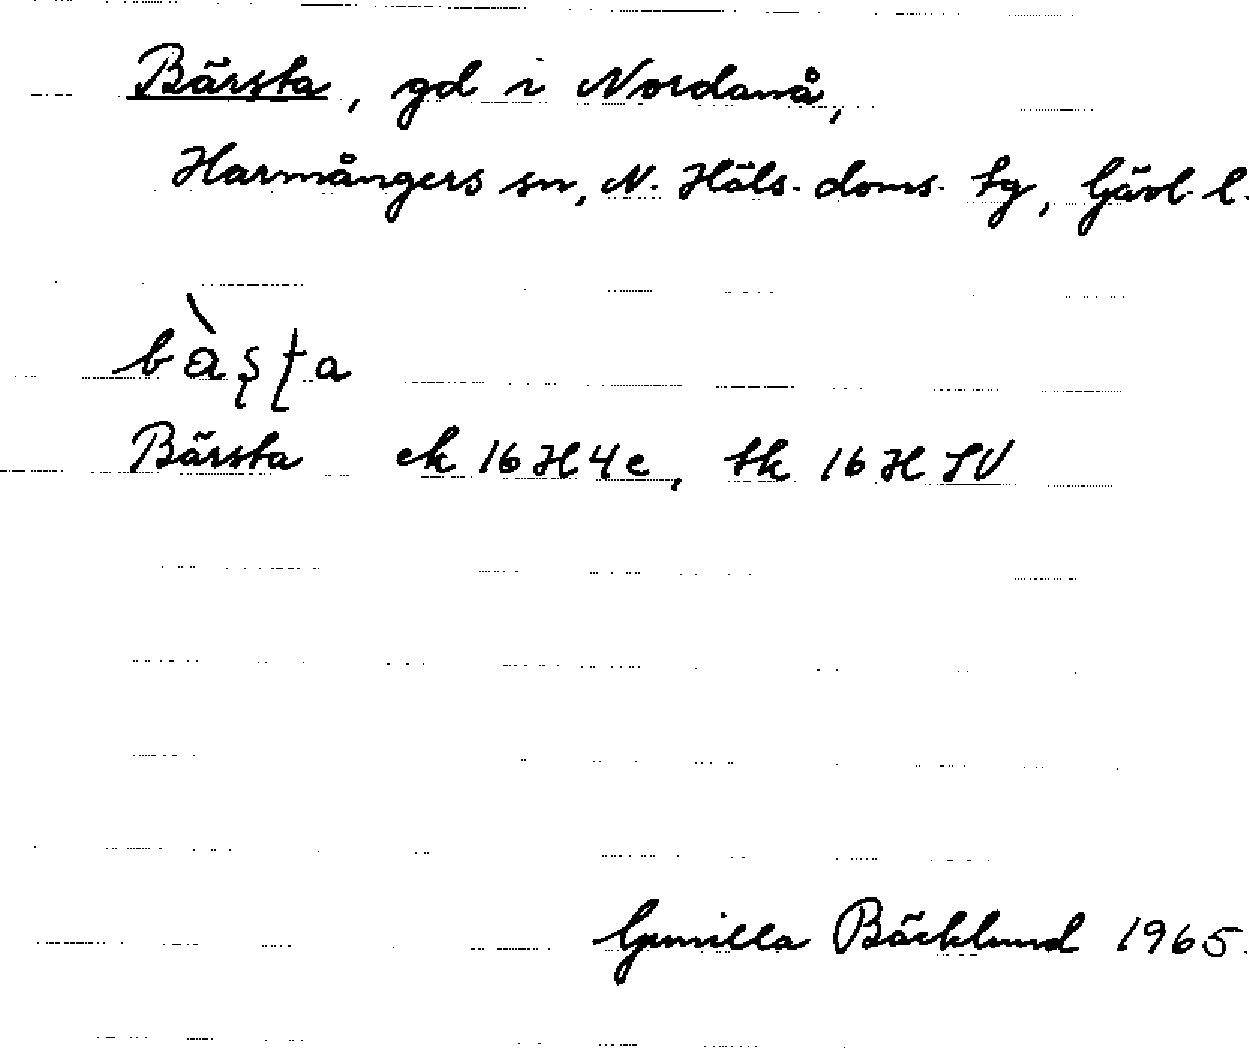 Bärsta, gd i Nordanå,
Harmångers sn, N. Häls. doms. tg, Gävl. l.
bàʂʈa
Bärsta ek 16H4e, tk 16H SV
Gunilla Bäcklund 1965.